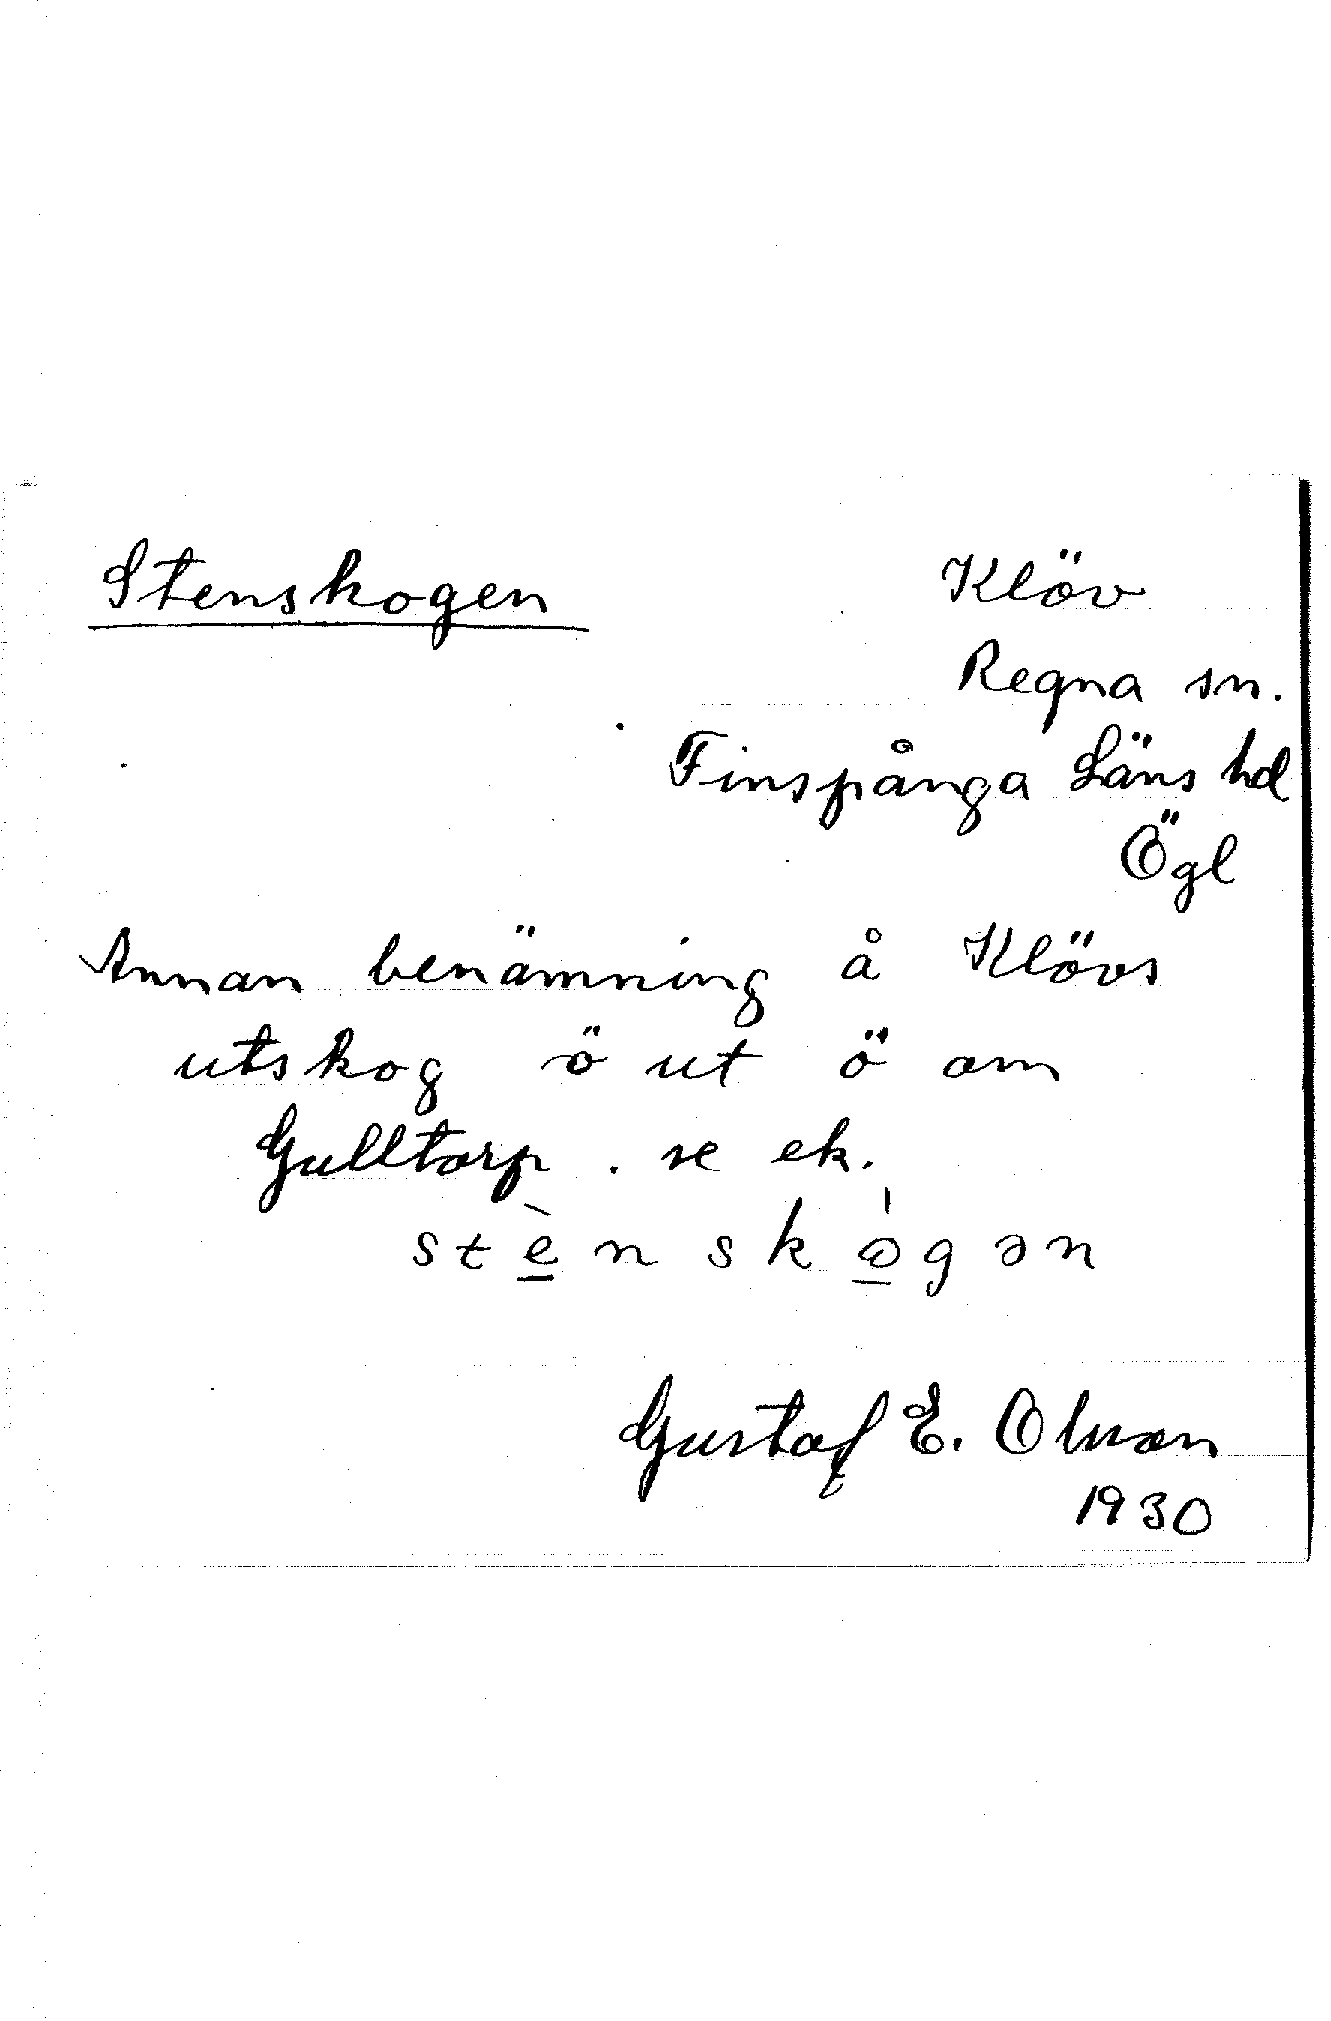 Stenskogen
Klöv
Regna sn.
Finspånga Läns hd
Ögl
Annan benämning å Klövs
utskog ö ut ö om
Gulltorp . se ek.
stè̱nskò̱gən
Gustaf E. Olsson
1930